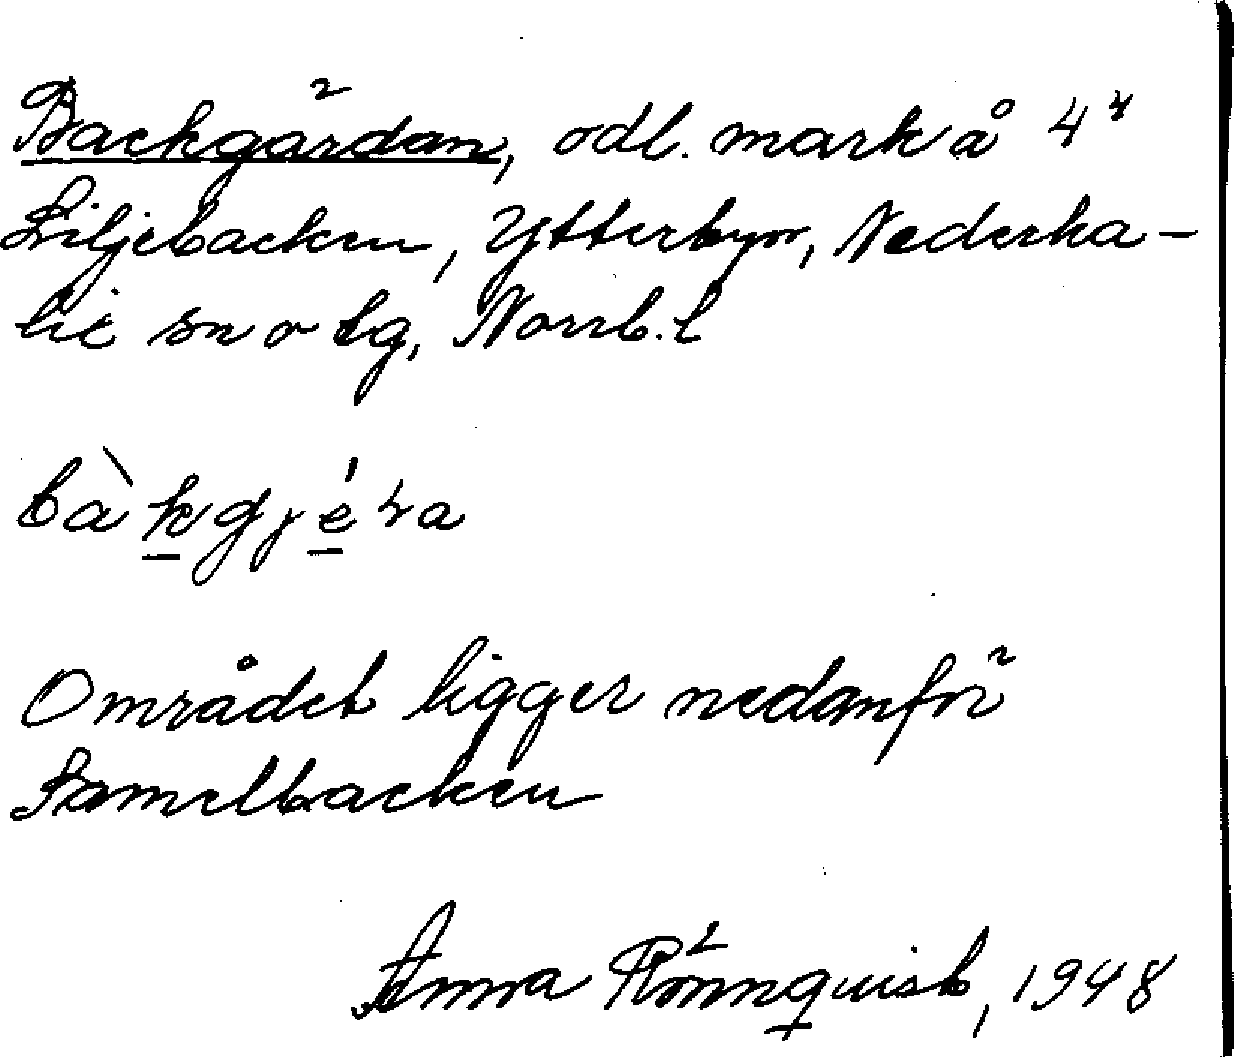 Backgärdan, odl. mark å 4⁴
Liljebacken, Ytterbyn, Nederka-
lix sn o tg, Norrb. l
bàkgjéra
Området ligger nedanför
Samelbacken
Anna Rönnquist, 1948